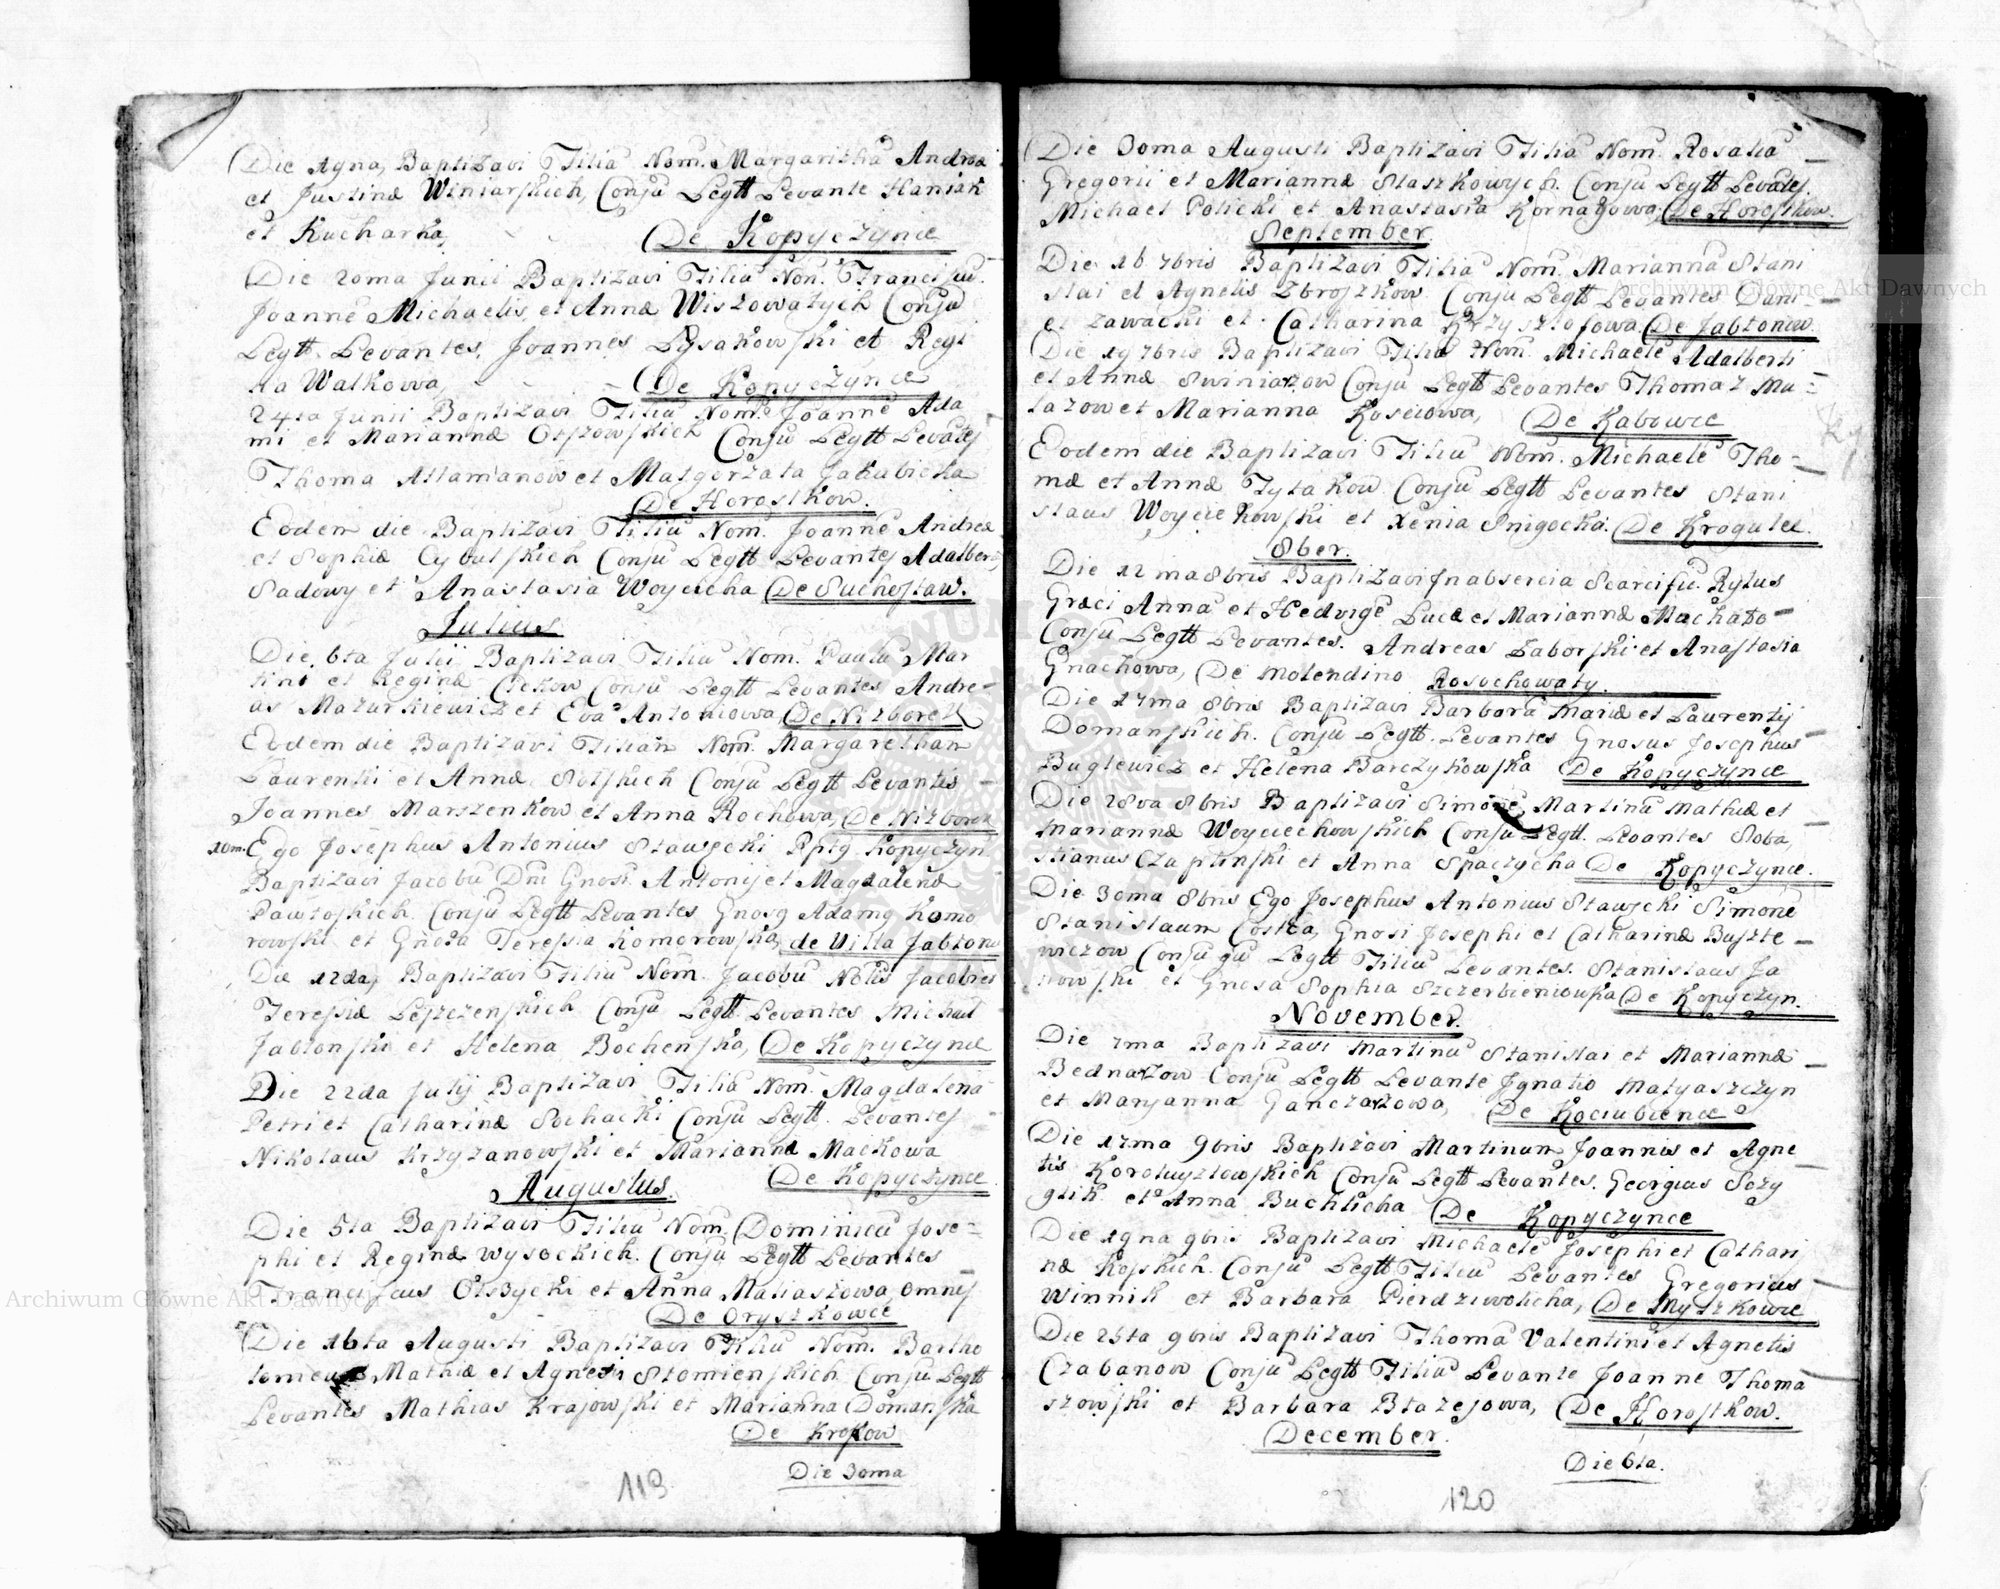 Die 19na, Baptizavi Filiã Nom. Margarithã Andreæ
et Justinæ Winiarskich, Conju Legtt Levante Haniak
et Kucharka,
De Kopyczynce
Die 20ma Junii Baptizavi Filiũ Nom. Franciscũ
Joannẽ Michaelis, et Annæ Wiszowatych Conju
Legtt. Levantes, Joannes Lysakowski et Regi
na Walkowa,
De Kopyczynce
24ta Junii Baptizavi Filiũ Nom. Joannẽ Ada
mi et Mariannæ Olszowskich Conjũ Legtt Levates
Thoma Attamanow et Malgorzata Jakubicka
De Horostkow.
Eodem die Baptizavi Filiũ Nom. Joannẽ Andreæ
et Sophiæ Cybulskich Conjũ Legtt Levantes Adalber,
Sadowy et Anastasia Woycicha De Suchostaw.
Julius
Die 6ta Julii Baptizavi Filiũ Nom. Paulũ Mar
tini et Reginæ Ciekow Conju Legtt Levantes Andre-
as Mazurkiewicz et Eva Antoniowa, De Nizborek
Eodem die Baptizavi Filiam Nom. Margaretham
Laurentii et Annæ Solskich Conju Legtt Levantis
Joannes Marszenkow et Anna Rochowa, De Nizborek
10m. Ego Josephus Antonius Stawecki Pptg Kopyczyn
Baptizavi Jacobũ Dni Gnosi Antonij et Magdalenæ
Pawtoskich Conju Legtt Levantes Gnosg Adamg Komo
rowski et Gnosa Teressia Komorowska, de Villa Jabtono
Die 12da, Baptizavi Filiũ Nom. Jacobũ Nobis Jacobi et
Teressiæ Leszczenskich Conju Legtt Levantes Michael
Jabtonski et Helena Bochenska, De Kopyczynce
Die 22da Julij Baptizavi Filiã Nom. Magdalena
Petri et Catharinæ Sochacki Conju Legtt. Levantes
Nikolaus Krzyzanowski et Mariannæ Mackowa
De Kopyczynce
Augustus.
Die 5ta Baptizavi Filiũ Nom. Dominicũ Jose-
phi et Reginæ Wysockich. Conju Legtt Levantes
Franciscus Olszycki et Anna Maliaszowa, omnes
De Oryszkowce
Die 16ta Augusti Baptizavi Filiũ Nom. Bartho
lomeus Mathiæ et Agnesi Stomienskich Conju Legtt
Levantes Mathias Krajowski et Marianna Domanska
De Krokow
Die 30ma
119
Die 30ma Augusti Baptizavi Filiã Nom. Rosaliã
Gregorii et Mariannæ Staszkowych. Conju Legtt Levates.
Michael Policki et Anastasia Kornagowa, De Horostkow.
September.
Die 16 7bris Baptizavi Filiã Nom. Mariannã Stani
slai et Agnetis Zbroszkow Conju Legtt Levantes Dani-
el Zawacki et Catharina Krzysztofowa De Jabtonow.
Die 19 7bris Baptizavi Filiũ Nom. Michaelẽ Adalberti
et Annæ Swiniarzow Conju Legtt Levantes Thomaz Ma-
lazow et Marianna Kosciowa, De Kabowce
Eodem die Baptizavi Filiũ Nom. Michaelẽ Tho-
mæ et Annæ Tytakow Conjũ Legtt Levantes Stani
slaus Woyciekowski et Xenia Snigocka. De Krogulec.
8ber.
Die 12ma 8bris Baptizavi Jnabsencia Rytus
Græci Annã et Hedvigẽ Lucæ et Mariannæ Machato-
Conju Legtt Levantes. Andreas Zaborski et Anastasia
Gnachowa, De Molendino Rosochowaty.
Die 17ma 8bris Baptizavi Barborã Mariæ et Laurentij
Domanskich. Conju Legtt. Levantes Gnosus Josephus
Buglewicz et Helena Barczykowska De Kopyczynce
Die 28va 8bris Baptizavi Simonẽ, Martinũ Mathiæ et
Mariannæ Woyciechowskich Conju Legtt. Levantes Soba,
stianus Czaplinski et Anna Spaczycha De Kopyczynce.
Die 30ma 8bris Ego Josephus Antonius Stawecki Simonẽ
Stanislaum Costka, Gnosi Josephi et Catharinæ Buszte-
wiczow Conjugũ Legtt Filiũ Levantes. Stanislaus Ja
nowski et Gnosa Sophia Szczerbieniowska De Kopyczyn.
November.
Die 7ma Baptizavi Martinũ Stanislai et Mariannæ
Bednarzow Conju Legtt Levante Jgnatio Matyaszczyn
et Maryanna Ganczarzowa, De Kociubience
Die 17ma 9bris Baptizavi Martinum Joannis et Agne
tis Koroluyzlowskich Conju Legtt Levantes. Georgius Sczy
glik et Anna Buchlicha De Kopyczynce
Die 19na 9bris Baptizavi Michaelẽ Josephi et Cathari
næ Koskich. Conju Legtt Filiũ Levantes Gregorius
Winnik et Barbara Pierdziwolicha, De Myszkowce
Die 25ta 9bris Baptizavi Thomã Valentini et Agnetis
Czabanow Conju Legtt Filiũ Levante Joanne Thoma
szowski et Barbara Btazejowa, De Horostkow.
December.
Die 6ta.
120
Archiwum Główne Akt Dawnych
Archiwum Główne Akt Dawnych